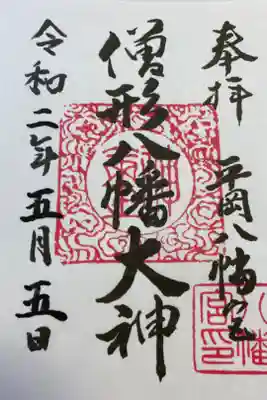 奉拝 平岡八幡宮
僧形八幡大神
令和二年五月五日